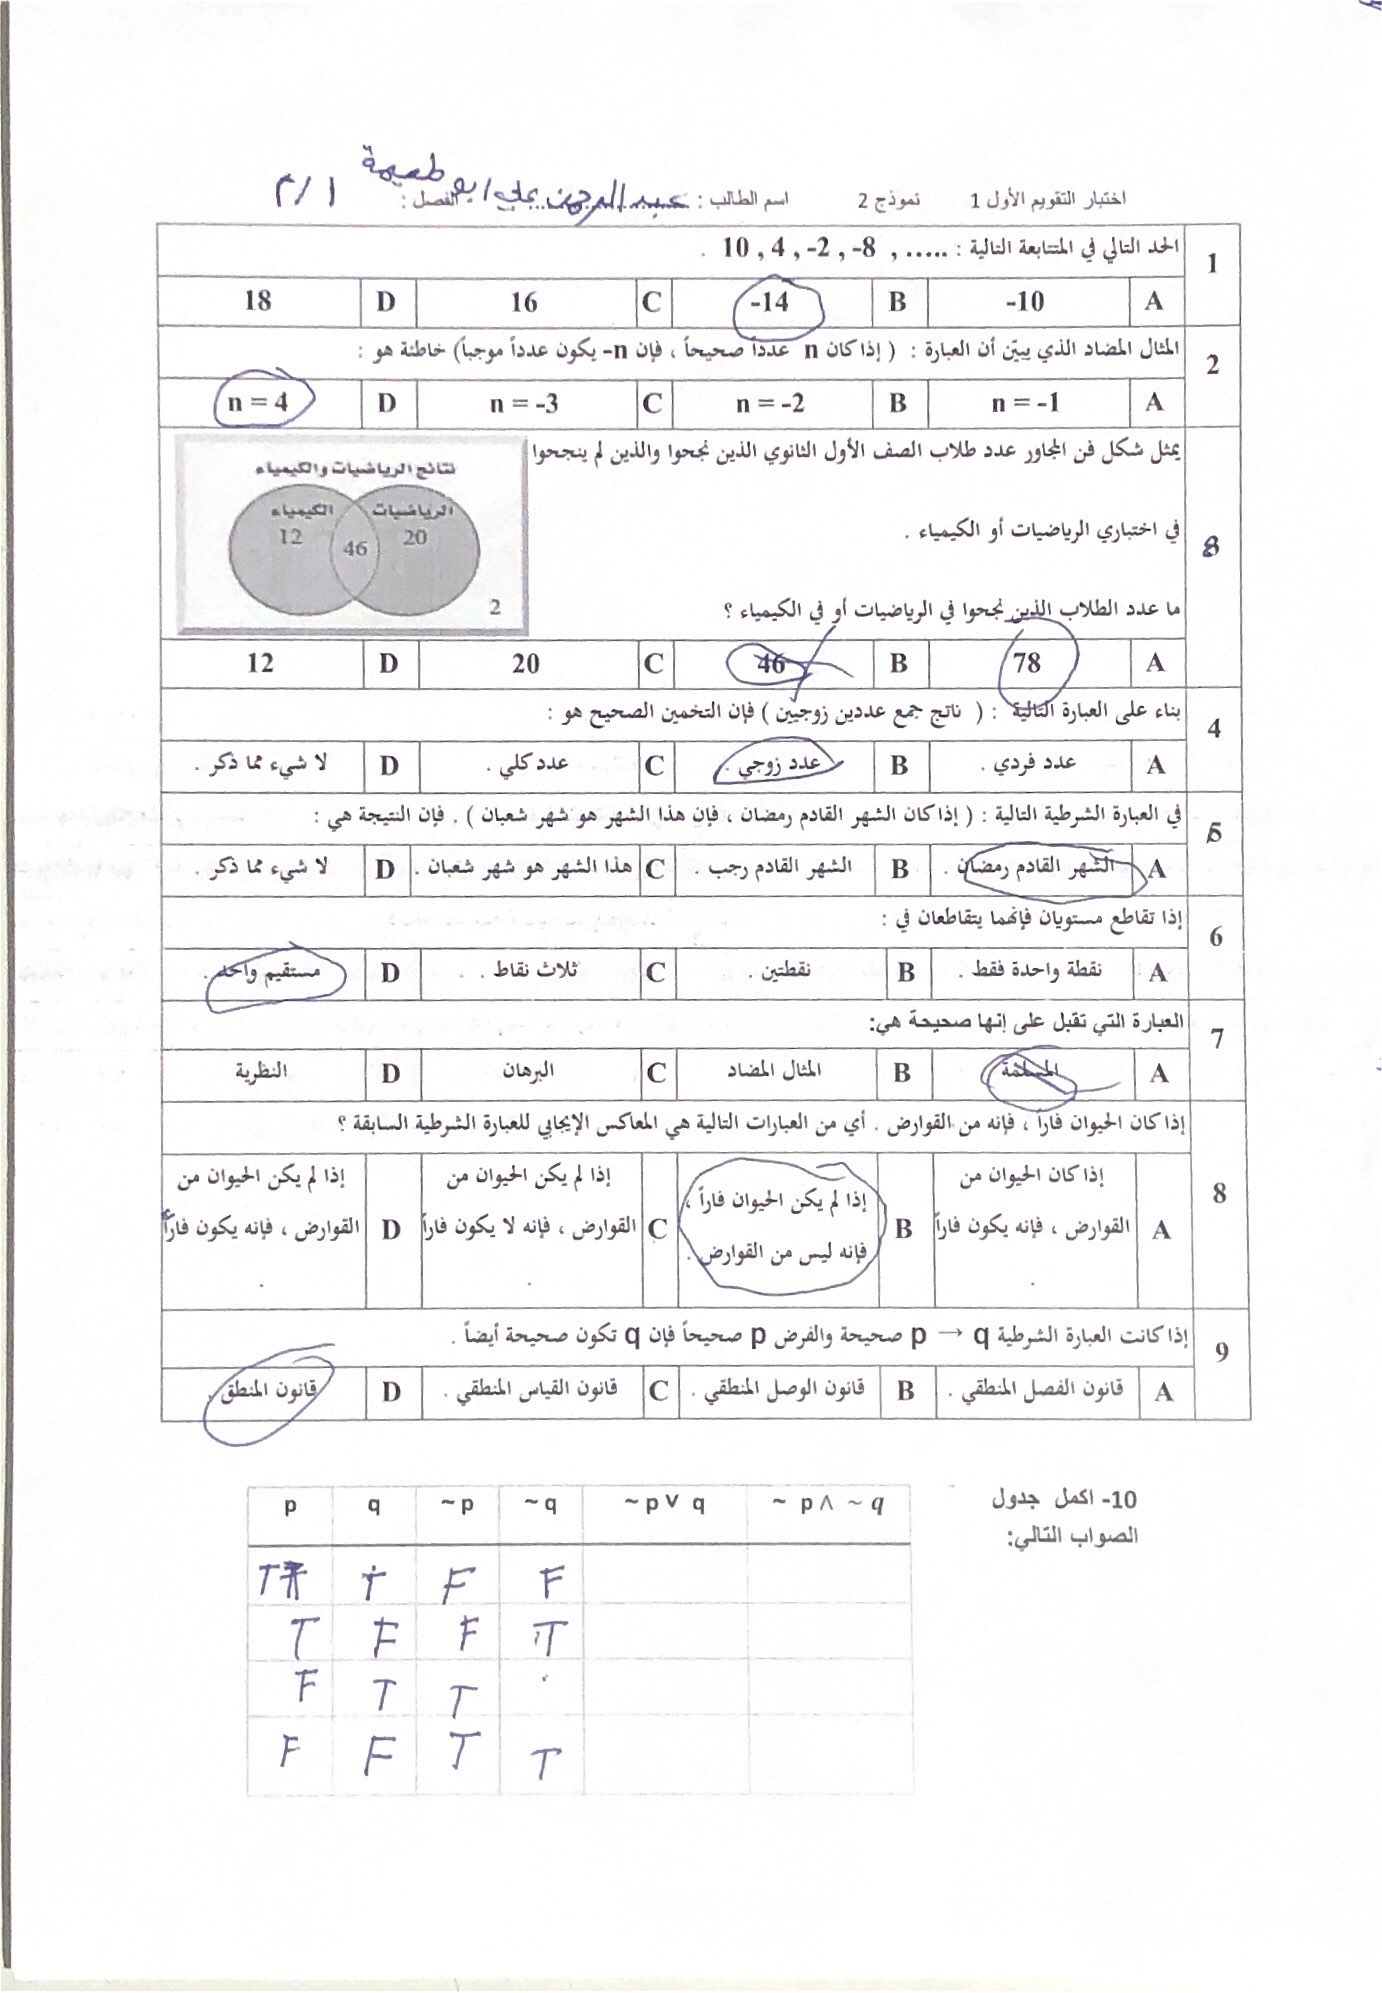 اختبار التقويم الأول 1 نموذج 2 اسم الطالب : عبد الرحمن علي ابو طعيمة الفصل : 1/م
1 الحد التالي في المتتابعة التالية : 10 , 4 , -2 , -8 , ..... .
A -10 B -14 C 16 D 18
2 المثال المضاد الذي يبيّن أن العبارة : ( إذا كان n عدداً صحيحاً ، فإن n- يكون عدداً موجباً) خاطئة هو :
A n = -1 B n = -2 C n = -3 D n = 4
يمثل شكل فن المجاور عدد طلاب الصف الأول الثانوي الذين نجحوا والذين لم ينجحوا
في اختباري الرياضيات أو الكيمياء .
ما عدد الطلاب الذين نجحوا في الرياضيات أو في الكيمياء ؟
نتائج الرياضيات والكيمياء
الرياضيات الكيمياء
20 46 12
2
A 78 B 46 C 20 D 12
4 بناء على العبارة التالية : ( ناتج جمع عددين زوجيين ) فإن التخمين الصحيح هو :
A عدد فردي . B عدد زوجي . C عدد كلي . D لا شيء مما ذكر .
5 في العبارة الشرطية التالية : ( إذا كان الشهر القادم رمضان ، فإن هذا الشهر هو شهر شعبان ) . فإن النتيجة هي :
A الشهر القادم رمضان . B الشهر القادم رجب . C هذا الشهر هو شهر شعبان . D لا شيء مما ذكر .
6 إذا تقاطع مستويان فإنهما يتقاطعان في :
A نقطة واحدة فقط . B نقطتين . C ثلاث نقاط . D مستقيم واحد .
7 العبارة التي تقبل على إنها صحيحة هي:
A المسلمة B المثال المضاد C البرهان D النظرية
8 إذا كان الحيوان فاراً ، فإنه من القوارض . أي من العبارات التالية هي المعاكس الإيجابي للعبارة الشرطية السابقة ؟
A إذا كان الحيوان من القوارض ، فإنه يكون فاراً . B إذا لم يكن الحيوان فاراً ، فإنه ليس من القوارض . C إذا لم يكن الحيوان من القوارض ، فإنه لا يكون فاراً . D إذا لم يكن الحيوان من القوارض ، فإنه يكون فاراً .
9 إذا كانت العبارة الشرطية p → q صحيحة والفرض p صحيحاً فإن q تكون صحيحة أيضاً .
A قانون الفصل المنطقي . B قانون الوصل المنطقي . C قانون القياس المنطقي . D قانون المنطق .
10- اكمل جدول
الصواب التالي:
p q ~p ~q ~p ∨ q ~ p ∧ ~ q
T T F F
T F F T
F T T
F F T T